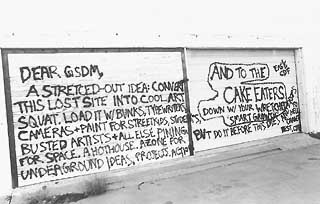 DEAR GSDM,
A STRETCHED-OUT IDEA: CONVERT
THIS LOST SITE INTO COOL ART
SQUAT. LOAD IT W/ BUNKS, TYPEWRITERS
CAMERAS + PAINT FOR STREET KIDS,
BUSTED ARTISTS + ALL ELSE PINING
FOR SPACE. A HOTHOUSE. A ZONE FOR
UNDERGROUND IDEAS, PROJECTS,
AND TO THE
CAKE EATERS
DOWN W/ YOUR
SMART
BUT DO IT BEFORE THIS DIES